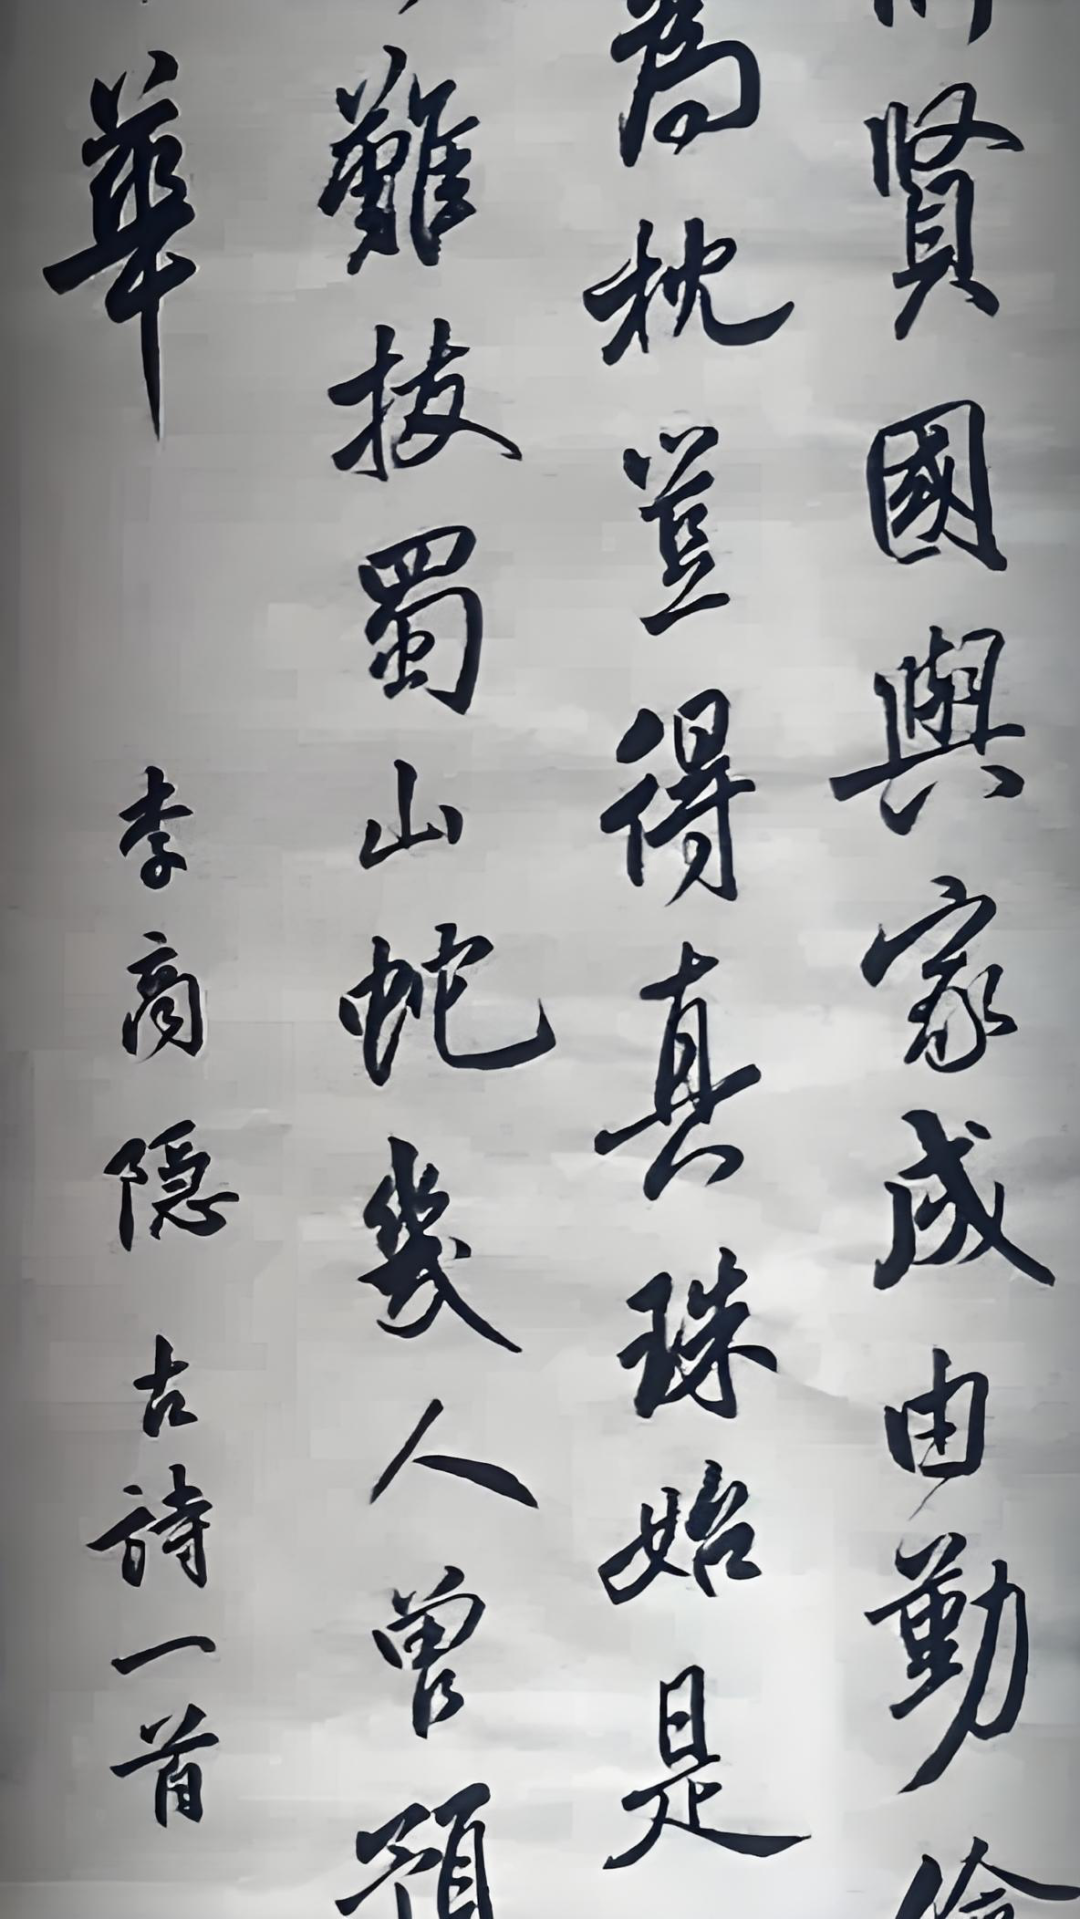 賢國與家成由勤儉
為枕豈得真珠始是
難拔蜀山蛇幾人曾預
華
李商隐古詩一首